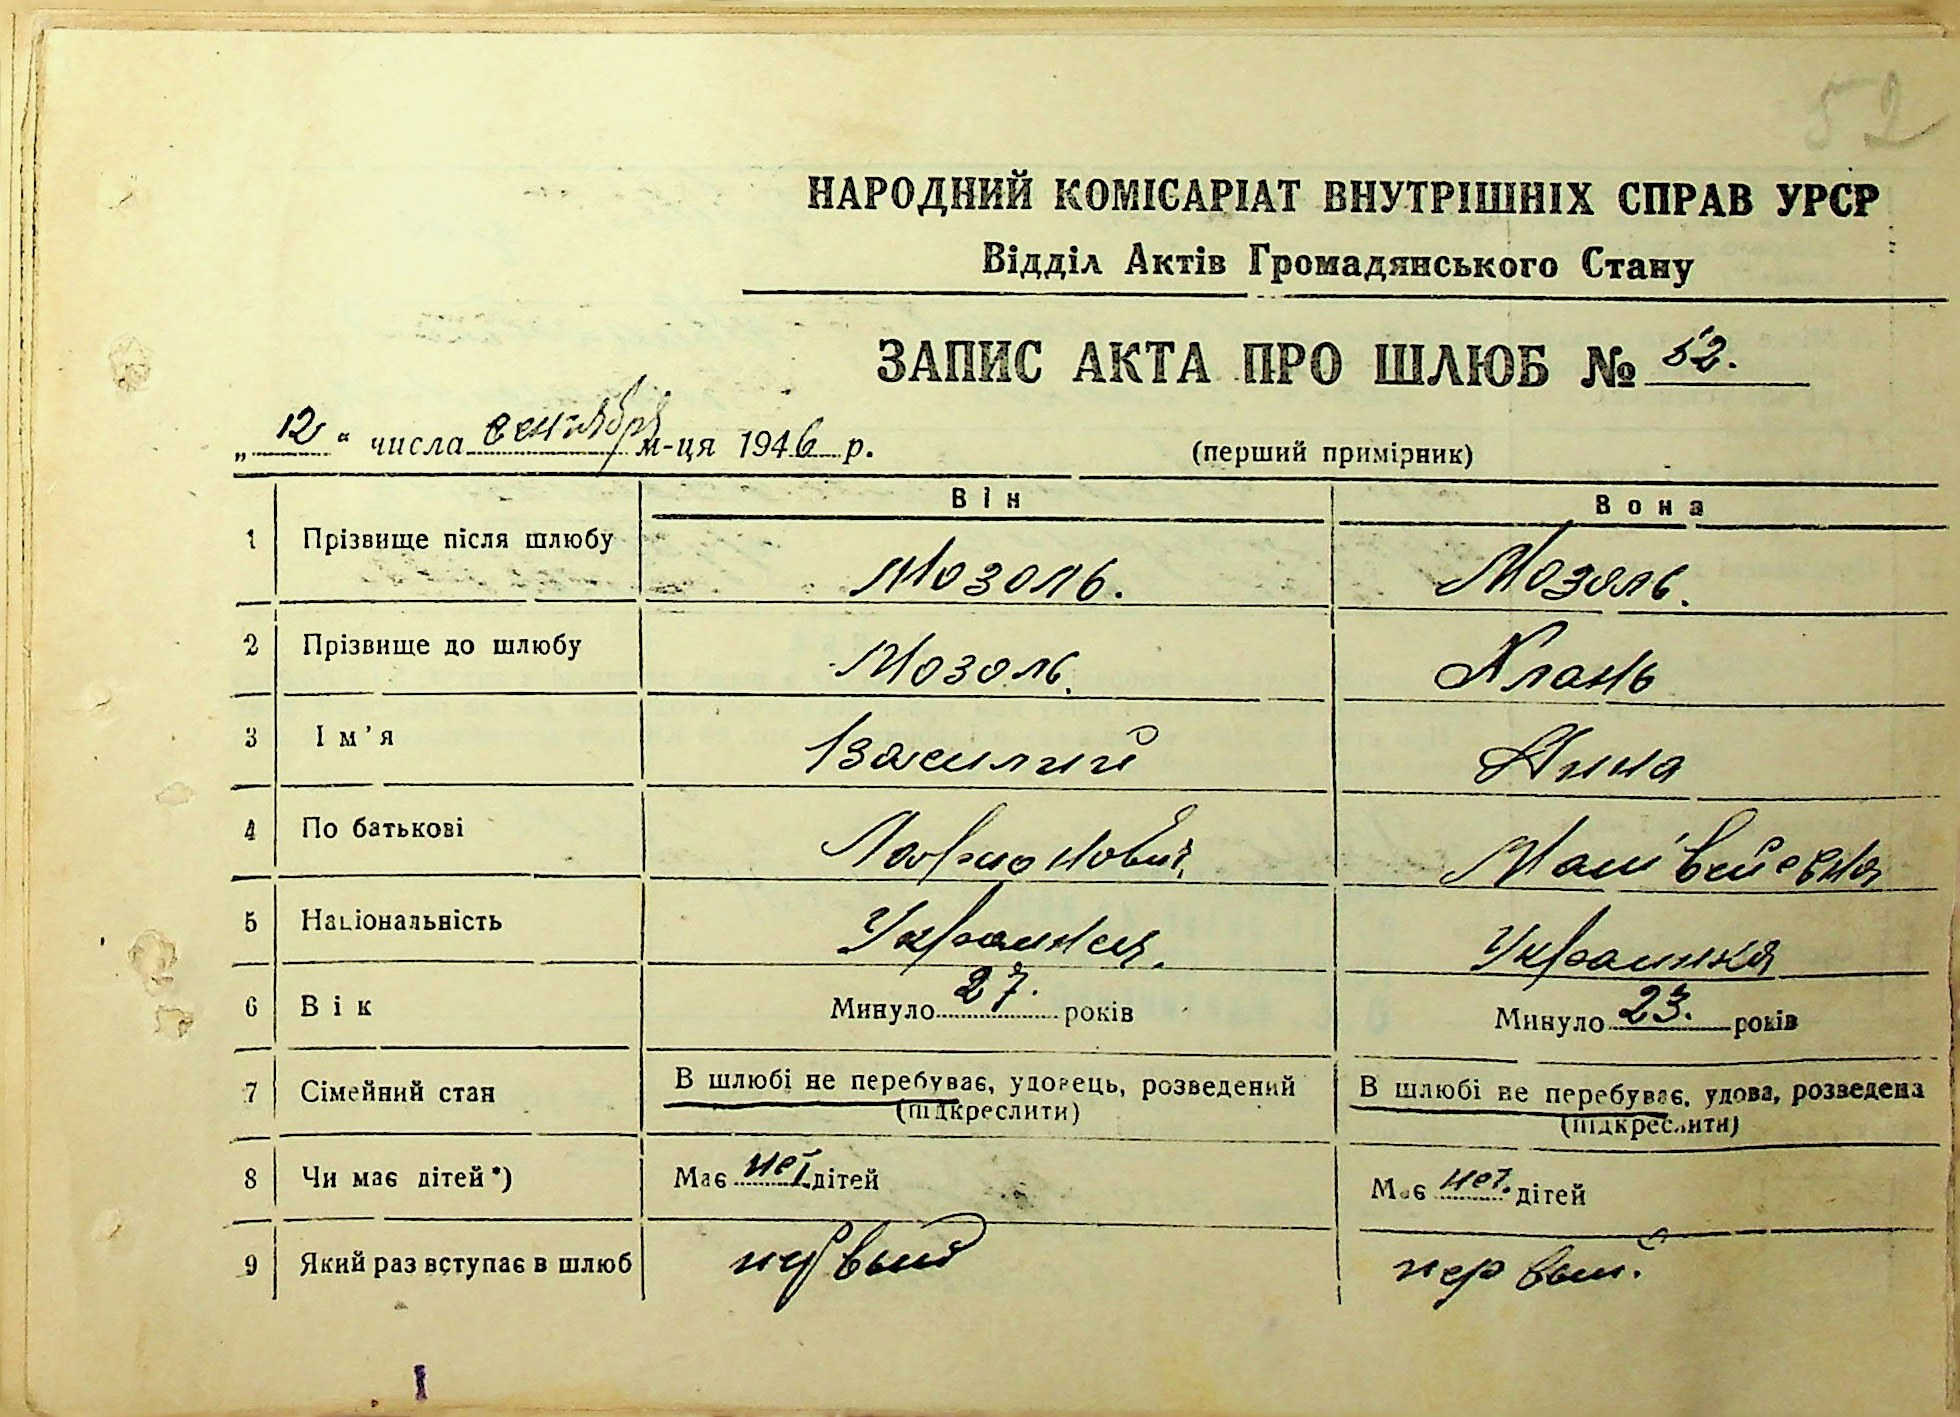 52
НАРОДНИЙ КОМІСАРІАТ ВНУТРІШНІХ СПРАВ УРСР
Відділ Актів Громадянського Стану
ЗАПИС АКТА ПРО ШЛЮБ № 52.
„12“ числа сентября м-ця 1946 р. (перший примірник)
Він Вона
1 Прізвище після шлюбу Мозоль. Мозоль.
2 Прізвище до шлюбу Мозоль. Клань
3 Ім'я Василий Анна
4 По батькові Матвейевна
5 Національність Украинец. Украинка
6 Вік Минуло 27. років Минуло 23. років
7 Сімейний стан В шлюбі не перебуває, удовець, розведений В шлюбі не перебуває, удова, розведена
(підкреслити) (підкреслити)
8 Чи має дітей*) Має нет дітей Має нет. дітей
9 Який раз вступає в шлюб первый первый.